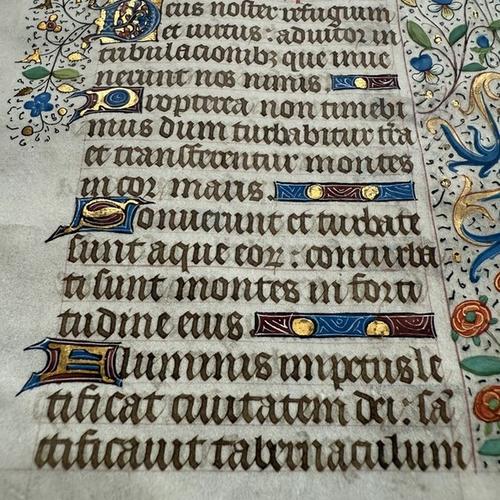 Deus noster refugium
et virtus: adiutor in
tribulacionibꝫ que inue
nerunt nos nimis
Propterea non timebi
mus dum turbabitur tr̄a
et transferentur montes
in cor maris.
Sonuerunt et turbate
sunt aque eoꝝ: conturba
ti sunt montes in forti
tudine eius
Fluminis impetus le
tificat ciuitatem dei: sā
ctificauit tabernaculum